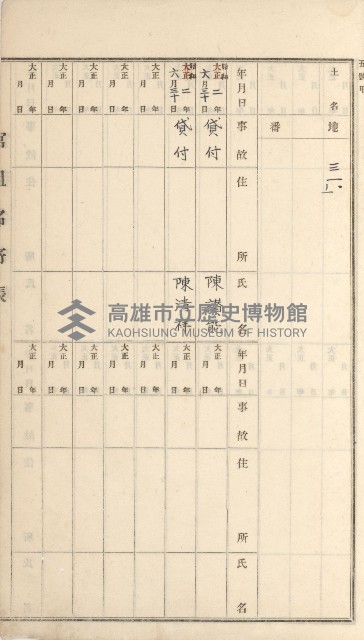 土名
地番
三一、
1
年月日
事故
住所
氏名
昭和
大正二年
六月三十日
貸付
陳
昭和
大正二年
六月三十日
貸付
陳清祥
大正 年 月 日
大正 年 月 日
大正 年 月 日
大正 年 月 日
大正 年 月 日
年月日
事故
住所
氏名
大正 年 月 日
大正 年 月 日
大正 年 月 日
大正 年 月 日
大正 年 月 日
大正 年 月 日
高雄市立歷史博物館
KAOHSIUNG MUSEUM OF HISTORY